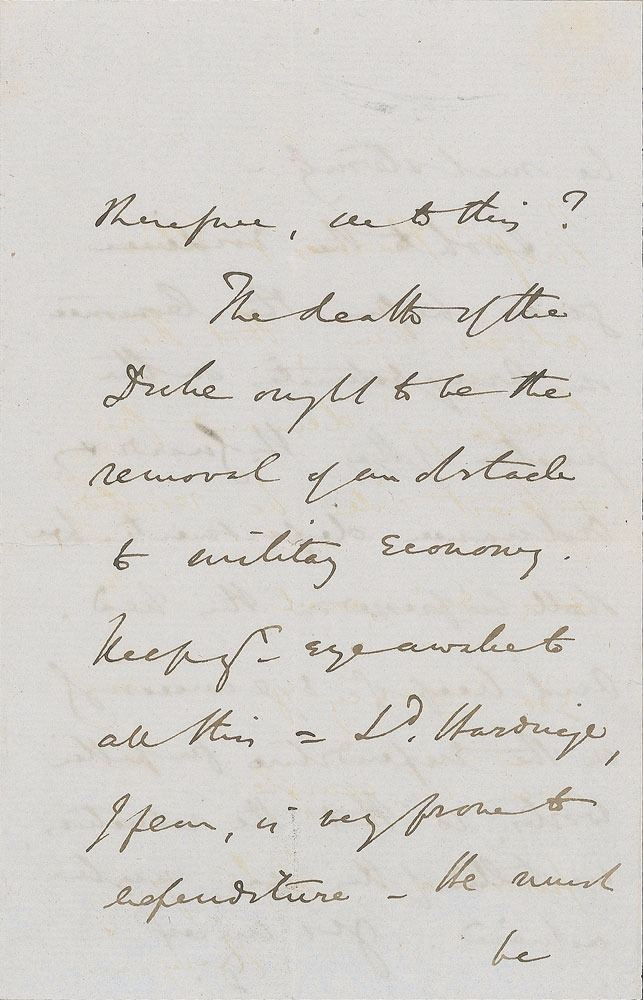 therefore, see to this?
The death of the
Duke ought to be the
removal of an obstacle
to military Economy.
Keep yr. eye awake to
all this = Ld. Hardinge,
I fear, is very prone to
expenditure - He must
be